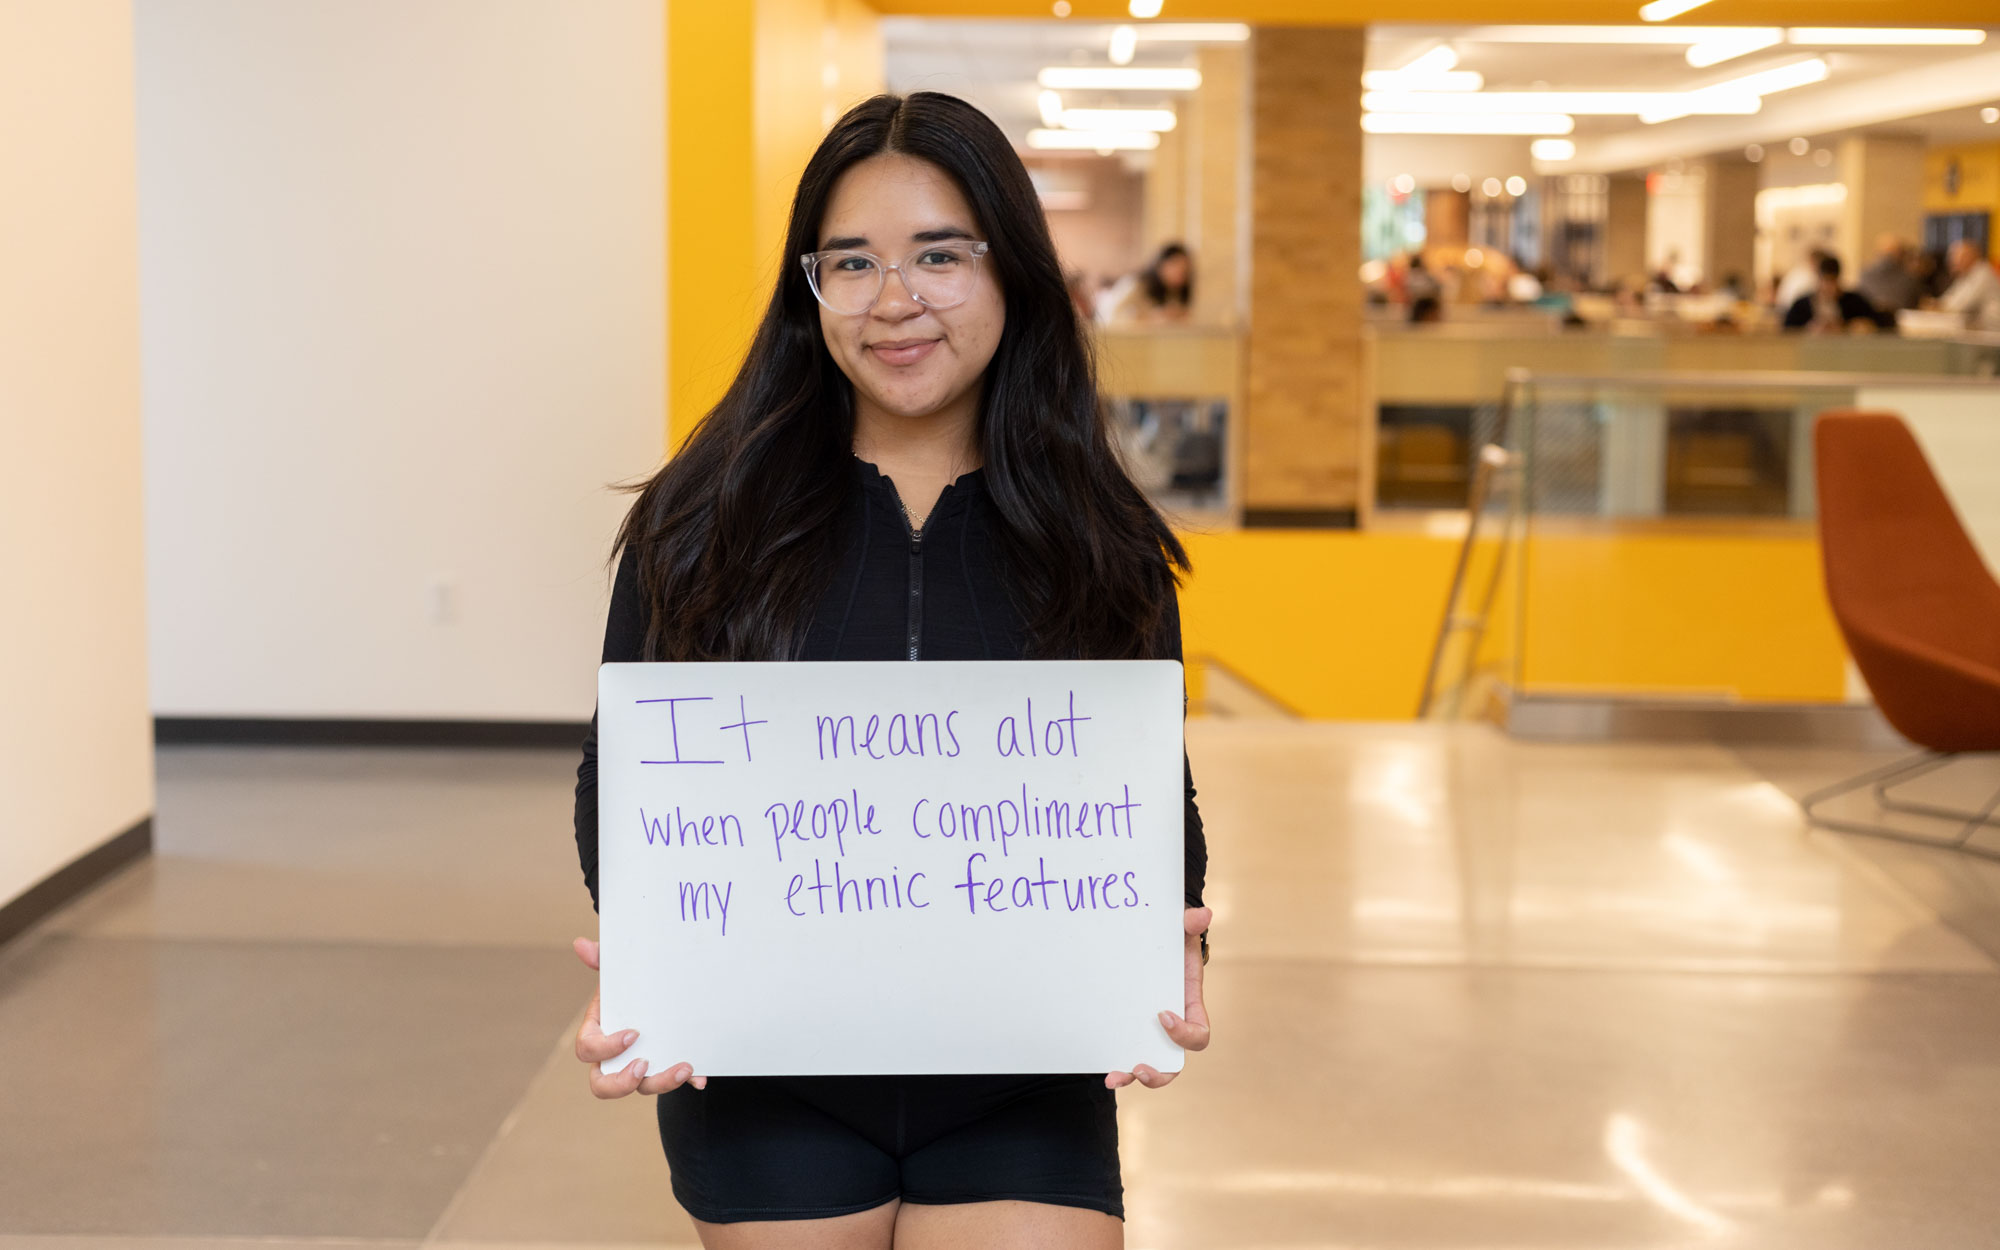 It means alot
when people compliment
my ethnic features.